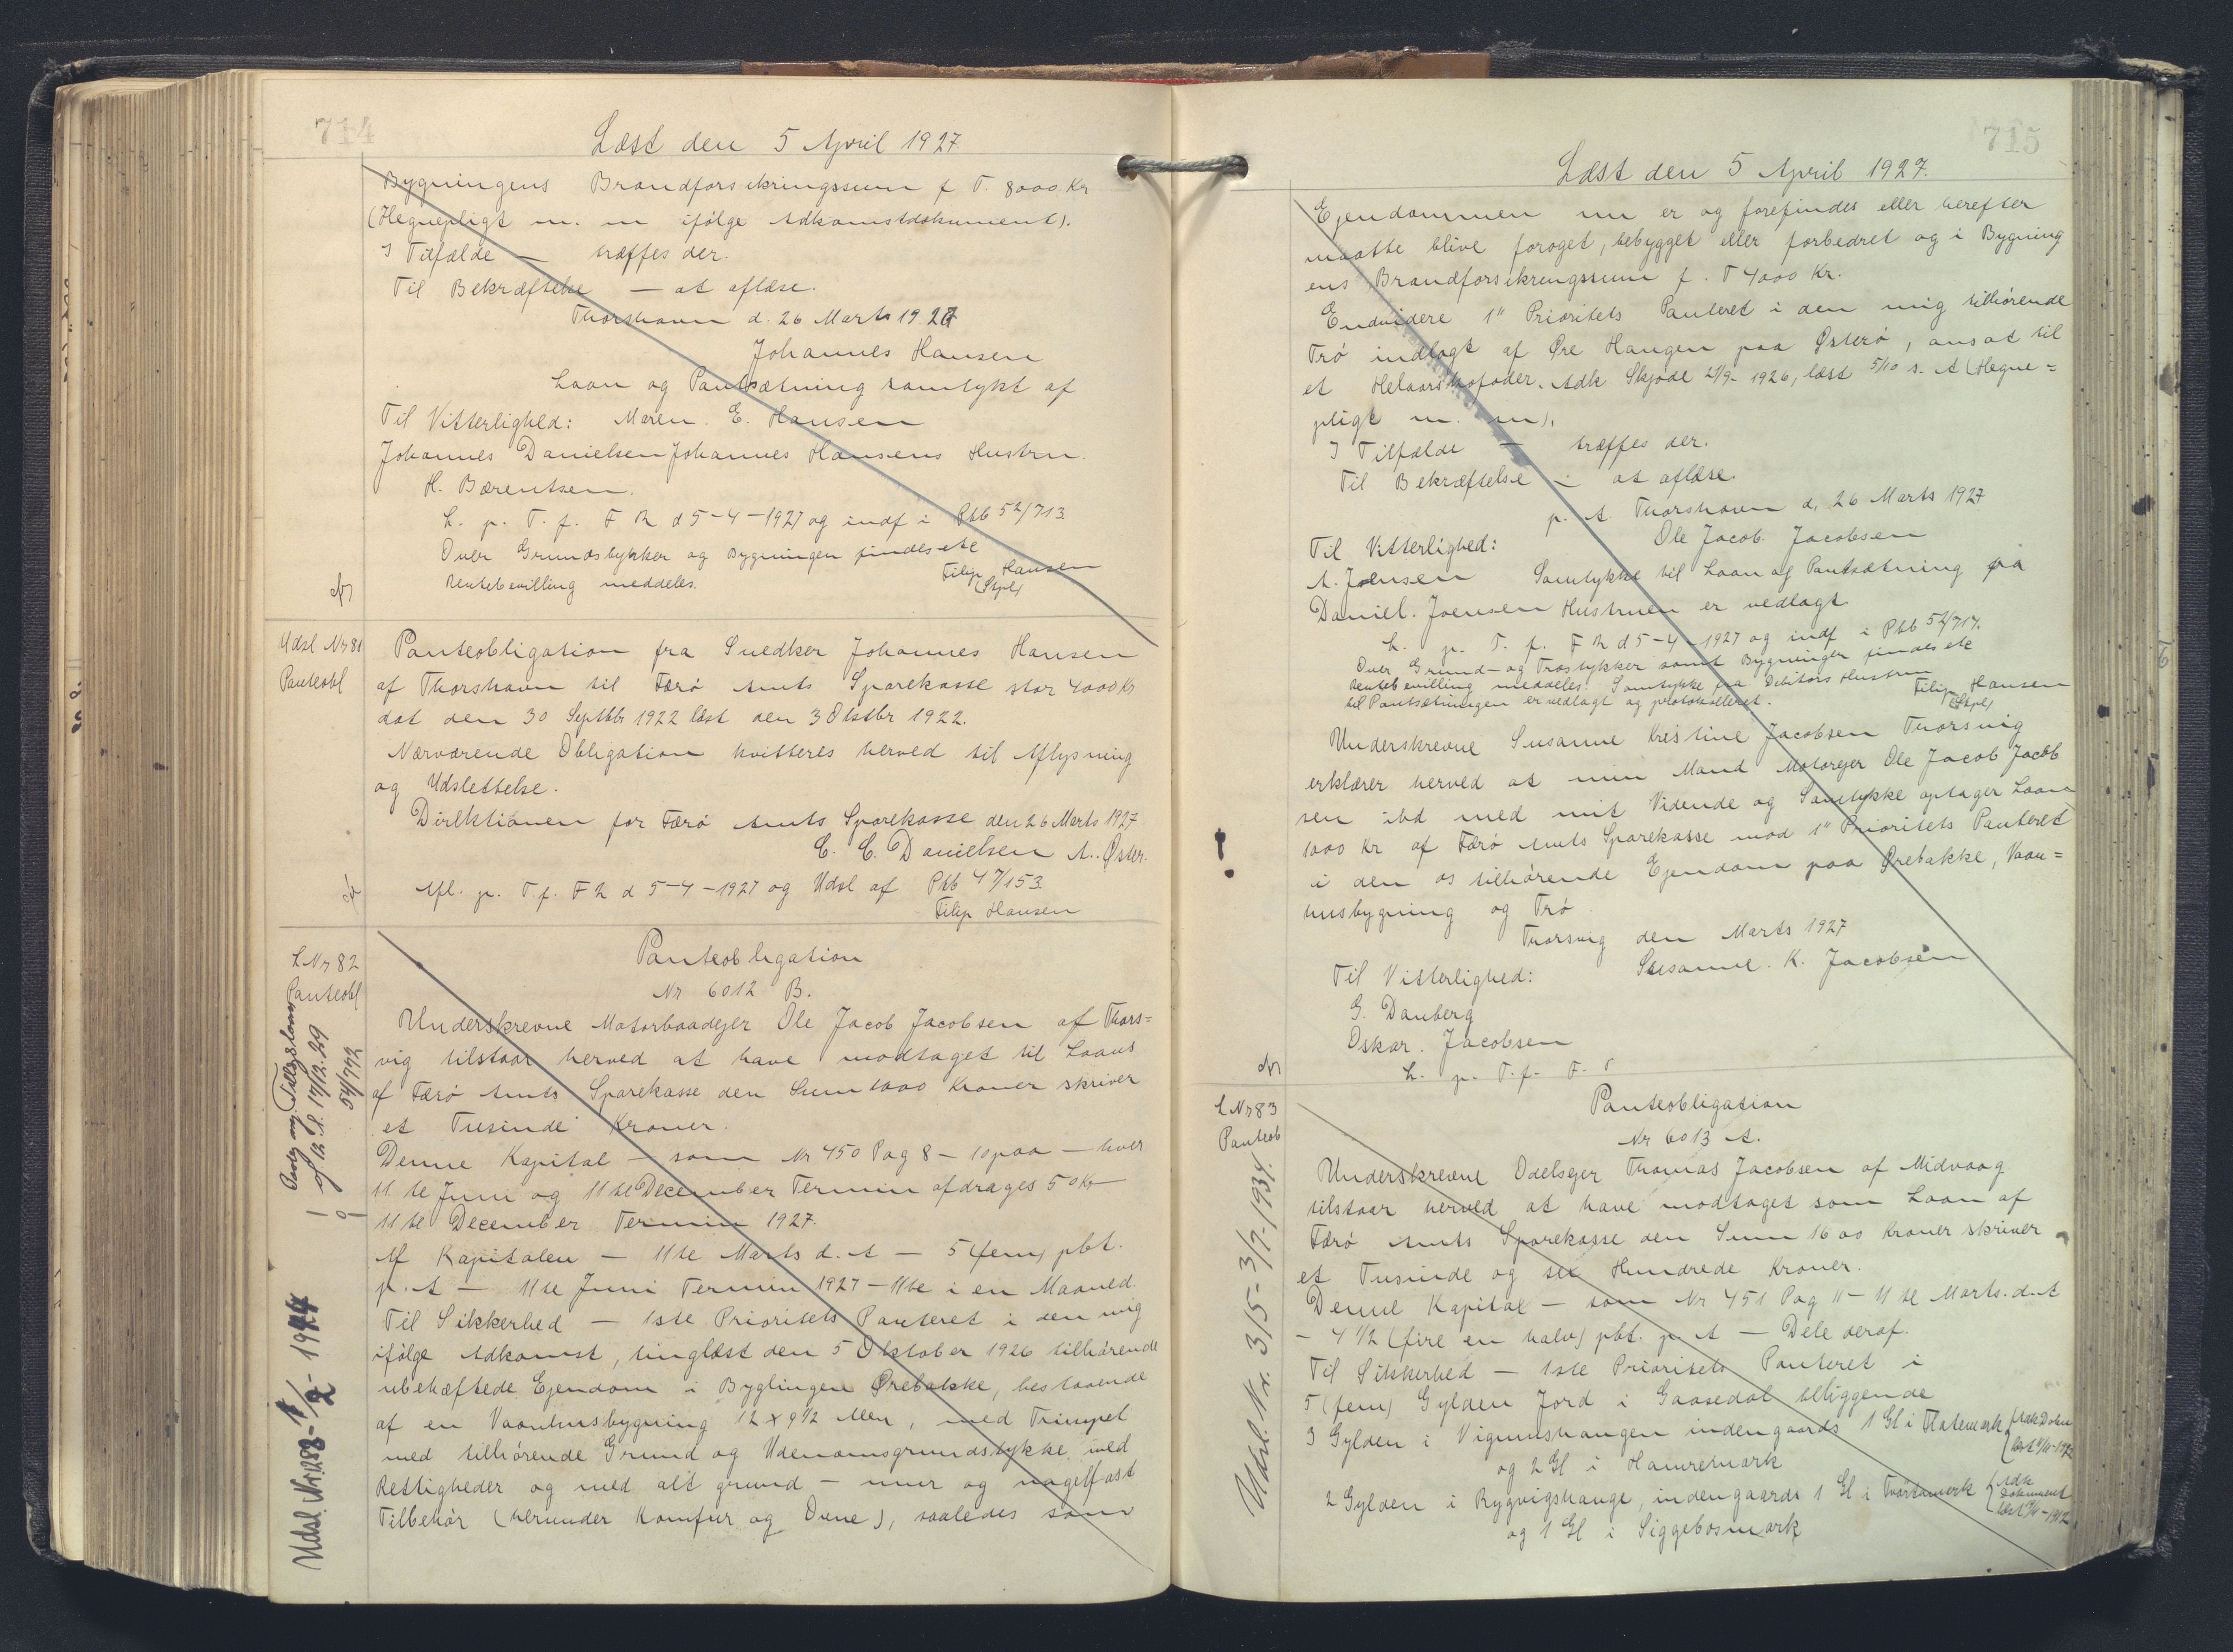 714
Læst den 5 April 1927.
Bygningens Brandforsikringssum f. T. 8000 Kr
(Hegnepligt m. m ifølge Adkomstdokument).
I Tilfælde — træffes der.
Til Bekræftelse — at aflæse.
Thorshavn d. 26 Marts 1927
Johannes Hansen
Laan og Pantsætning samtykt af
Til Vitterlighed: Maren. E. Hansen
Johannes Danielsen Johannes Hansens Hustru.
H. Bærentsen.
L. p. T. f. F R d 5-4-1927 og indf i Pbb 52/713
Over Grundstykker og Bygningen findes ele
Rentebevilling meddeles.
Filip Hansen
(Skpl)
Udsl Nr 81
Panteobl
Panteobligation fra Snedker Johannes Hansen
af Thorshavn til Færø Amts Sparekasse stor 4000 Kr
dat den 30 Septbr 1922 læst den 3 Oktbr 1922.
Nærværende Obligation kvitteres herved til Aflysning
og Udslettelse.
Direktionen for Færø Amts Sparekasse den 26 Marts 1927
C. C. Danielsen A. Øster.
Afl. p. T. f. F R d 5-4-1927 og Udsl af Pbb 47/153
Filip Hansen
L Nr 82
Panteobl
Panteobligation
Nr 6012 B.
Underskrevne Motorbaadejer Ole Jacob Jacobsen af Thors=
vig tilstaar herved at have modtaget til Laans
af Færø Amts Sparekasse den Sum 1000 Kroner skriver
et Tusinde Kroner.
Denne Kapital — som Nr 450 Pag 8 — 10paa — hver
11 te Juni og 11 te December Termin afdrages 50 Kr —
11 te December Termin 1927.
Af Kapitalen — 11te Marts d. A — 5 (fem) pbt.
p. A — 11 te Juni Termin 1927 — 11te i en Maaned.
Til Sikkerhed — 1ste Prioritets Panteret i den mig
ifølge Adkomst, tinglæst den 5 Oktober 1926 tilhørende
ubehæftede Ejendom i Byglingen Ørebakke, bestaaende
af en Vaanhusbygning 12 x 9 1/2 Alen, med Trimpel
med tilhørende Grund og Udenomsgrundstykke med
Rettigheder og med alt grund — mur og nagelfast
Tilbehør (herunder Komfur og Ovne), saaledes som
af 12. A. 17/12.29
54/742
Udsl. Nr. 283 - 1/2 - 1944
715
Læst den 5 April 1927.
Ejendommen nu er og forefindes eller herefter
maatte blive foroget, bebygget eller forbedret og i Bygning
ens Brandforsikringssum f. T 4000 Kr.
Endvidere 1" Prioritets Panteret i den mig tilhørende
Trø indlagt af Øre Haugen paa Østerø, ansat til
et Helaarskofoder. Adk Skjøde 21/9- 1926, læst 5/10 s. A (Hegne=
pligt m. m).
I Tilfælde — træffes der.
Til Bekræftelse — at aflæse.
p. t Thorshavn d. 26 Marts 1927
Til Vitterlighed: Ole Jacob Jacobsen
A. Joensen Samtykke til Laan og Pantsætning fra
Daniel. Joensen Hustruen er vedlagt
L. p. T. f. F R d 5-4-1927 og indf i Pbb 52/714.
Over Grund- og Trøstykker samt Bygninger findes ele
Rentebevilling meddeles. Samtykke fra Debitors Hustru
til Pantsætningen er vedlagt og protokolleret.
Filip Hansen
(Skpl)
Underskrevne Susanne Kristine Jacobsen Thorsvig
erklærer herved at min Mand Motorejer Ole Jacob Jacob
sen ibd med mit Vidende og Samtykke optager Laan
1000 Kr af Færø Amts Sparekasse mod 1" Prioritets Panteret
i den os tilhørende Ejendom paa Ørebakke, Vaan=
husbygning og Trø
Thorsvig den Marts 1927
Til Vitterlighed: Susanne. K. Jacobsen
G. Danberg
Oskar. Jacobsen
L. p. T. f. F. R
L Nr 83
Panteob
Panteobligation
Nr 6013 A.
Underskrevne Odelsejer Thomas Jacobsen af Midvaag
tilstaar herved at have modtaget som Laan af
Færø Amts Sparekasse den Sum 1600 Kroner skriver
et Tusinde og sex Hundrede Kroner.
Denne Kapital — som Nr 451 Pag 11 — 11 te Marts. d. A
— 4 1/2 (fire en halv) pbt. p. A — Dele deraf.
Til Sikkerhed — 1ste Prioritets Panteret i
5 (fem) Gylden Jord i Gaasedal beliggende
3 Gylden i Vigumshaugen indengaards 1 Gl i Flatemark
og 2 Gl i Hamremark
2 Gylden i Rygvigshauge, indengaards 1 Gl i Tvørtamerk (Adk
Dokument
og 1 Gl i Siggebosmark
Udsl. Nr. 315 - 3/7-1934.